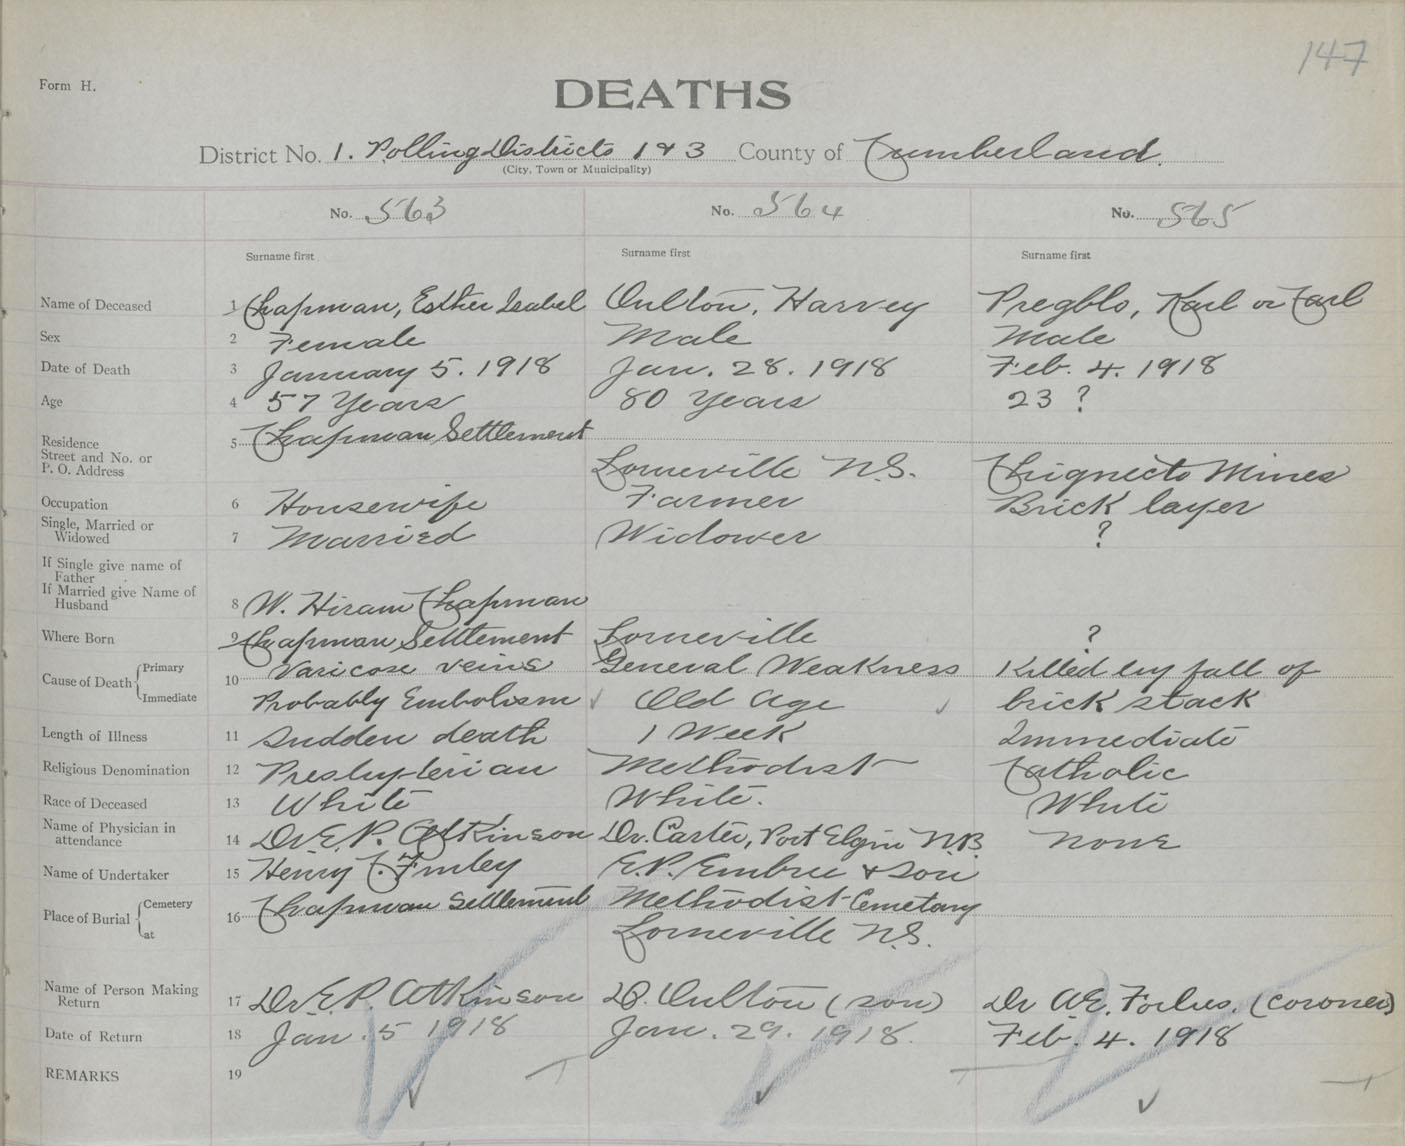 147
Form H.
DEATHS
District No. 1. Polling Districts 1 & 3 County of Cumberland.
(City, Town or Municipality)
No. 563 No. 564 No. 565
Surname first Surname first Surname first
Name of Deceased 1 Chapman, Esther Isabel Oulton, Harvey Pregblo, Karl or Carl
Sex 2 Female Male Male
Date of Death 3 January 5. 1918 Jan. 28. 1918 Feb. 4. 1918
Age 4 57 Years 80 Years 23 ?
Residence 5 Chapman Settlement
Street and No. or
P. O. Address Lorneville N.S. Chignecto Mines
Occupation 6 Housewife Farmer Brick layer
Single, Married or
Widowed 7 Married Widower ?
If Single give name of
Father
If Married give Name of
Husband 8 W. Hiram Chapman
Where Born 9 Chapman Settlement Lorneville ?
Cause of Death Primary 10 Varicose veins General Weakness Killed by fall of
Immediate Probably Embolism Old Age brick stack
Length of Illness 11 Sudden death 1 Week Immediate
Religious Denomination 12 Presbyterian Methodist Catholic
Race of Deceased 13 White White. White
Name of Physician in
attendance 14 Dr. E. P. Atkinson Dr. Carter, Port Elgin N.B None
Name of Undertaker 15 Henry C. E.P. Embree & Son
Place of Burial Cemetery 16 Chapman Settlement Methodist Cemetary
at Lorneville N.S.
Name of Person Making
Return 17 Dr. E. P. Atkinson Oulton (son) Dr A.E. Forbes. (coroner)
Date of Return 18 Jan. 5 1918 Jan. 29. 1918. Feb. 4. 1918
REMARKS 19